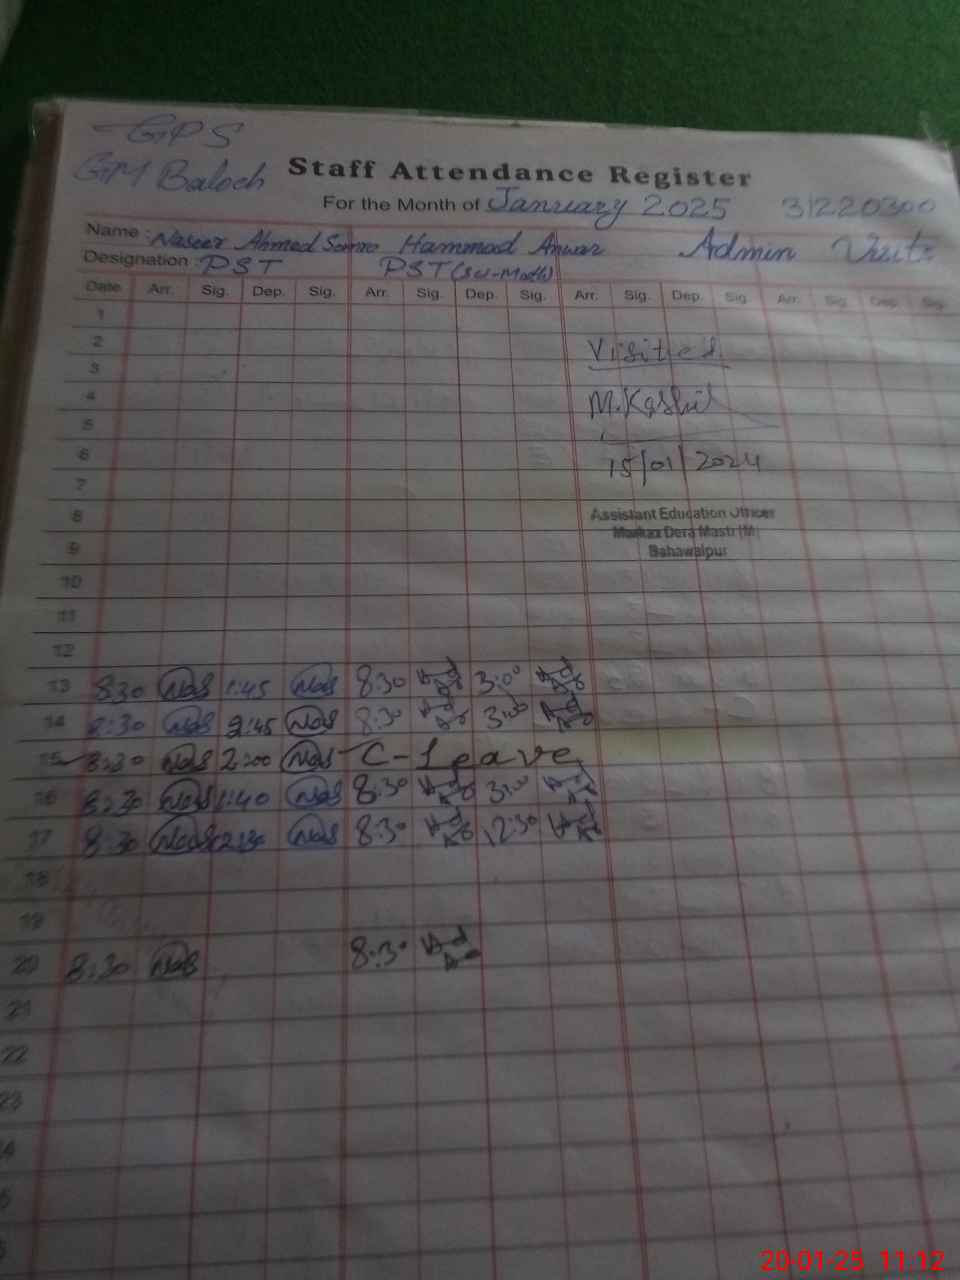 GPS
GM Baloch Staff Attendance Register
For the Month of January 2025 31220300
Name : Naseer Ahmed Somro Hammad Anwar Admin Visits
Designation : PST PST (Sci-Math)
Date Arr. Sig. Dep. Sig. Arr. Sig. Dep. Sig. Arr. Sig. Dep. Sig. Arr. Sig. Dep. Sig.
1
2 Visited
3
4 M.Kashif
5
6 15/01/2024
7
8 Assistant Education Officer
Markaz Dera Masti (M)
9 Bahawalpur
10
11
12
13 8:30 Nas 1:45 Nas 8:30 3:00
14 8:30 Nas 2:45 Nas 8:30 3:00
15 8:30 Nas 2:00 Nas C-Leave
16 8:30 Nas 1:40 Nas 8:30 3:00
17 8:30 Nas 12:30 Nas 8:30 12:30
18
19
20 8:30 Nas 8:30
21
22
23
4
5
20-01-25 11:12